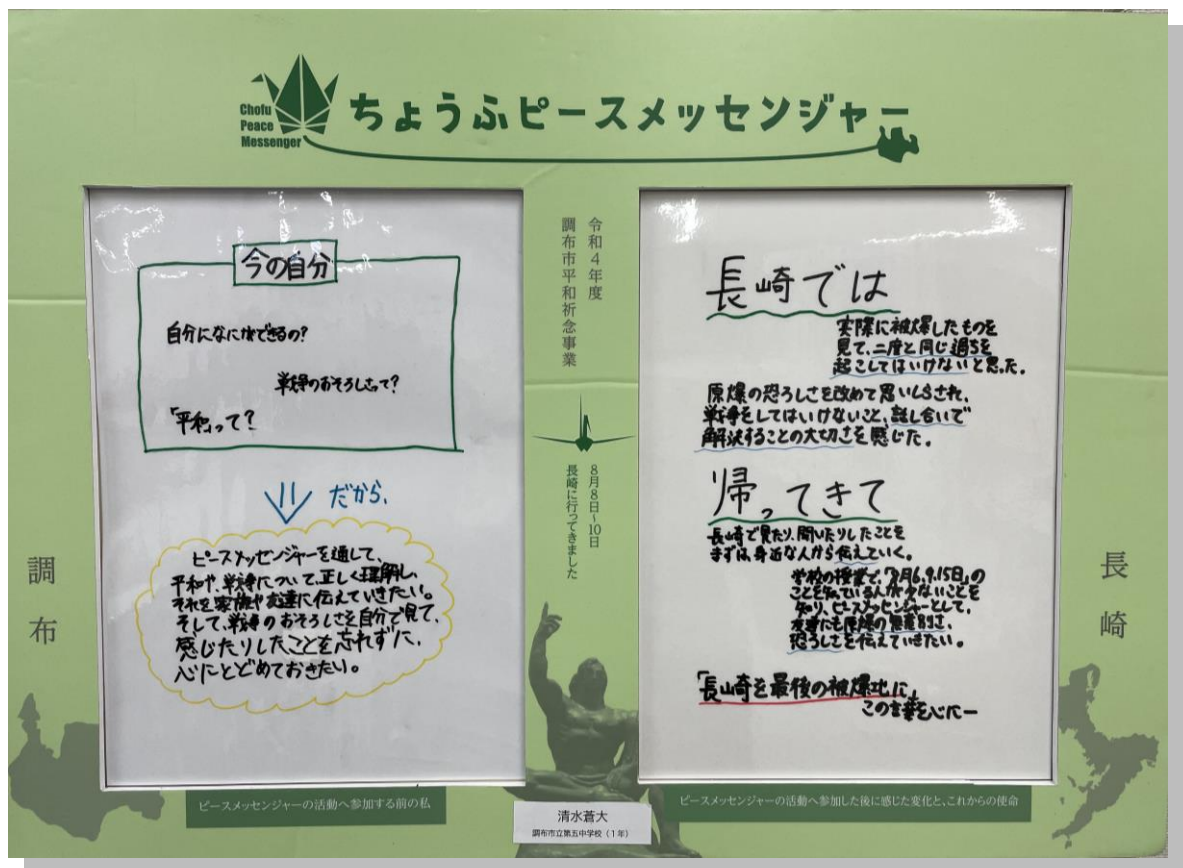 Chofu
Peace
Messenger
ちょうふピースメッセンジャー
今の自分
自分になにができるの?
戦争のおそろしさって?
「平和」って?
だから、
ピースメッセンジャーを通して、
平和や、戦争について、正しく理解し、
それを家族や友達に伝えていきたい。
そして、戦争のおそろしさを自分で見て、
感じたりしたことを忘れずに、
心にとどめておきたい。
令和4年度
調布市平和祈念事業
8月8日~10日
長崎に行ってきました
長崎では
実際に被爆したものを
見て、二度と同じ過ちを
起こしてはいけないと思った。
原爆の恐ろしさを改めて思いしらされ、
戦争をしてはいけないこと、話し合いで
解決することの大切さを感じた。
帰ってきて
長崎で見たり、聞いたりしたことを
まずは、身近な人から伝えていく。
学校の授業で、「8月6,9,15日」の
ことを知っている人が少ないことを
知り、ピースメッセンジャーとして、
友達にも原爆の
恐ろしさを伝えていきたい。
「長崎を最後の被爆地に」
この言葉を心にー
調布
長崎
ピースメッセンジャーの活動へ参加する前の私
清水蒼大
調布市立第五中学校(1年)
ピースメッセンジャーの活動へ参加した後に感じた変化と、これからの使命